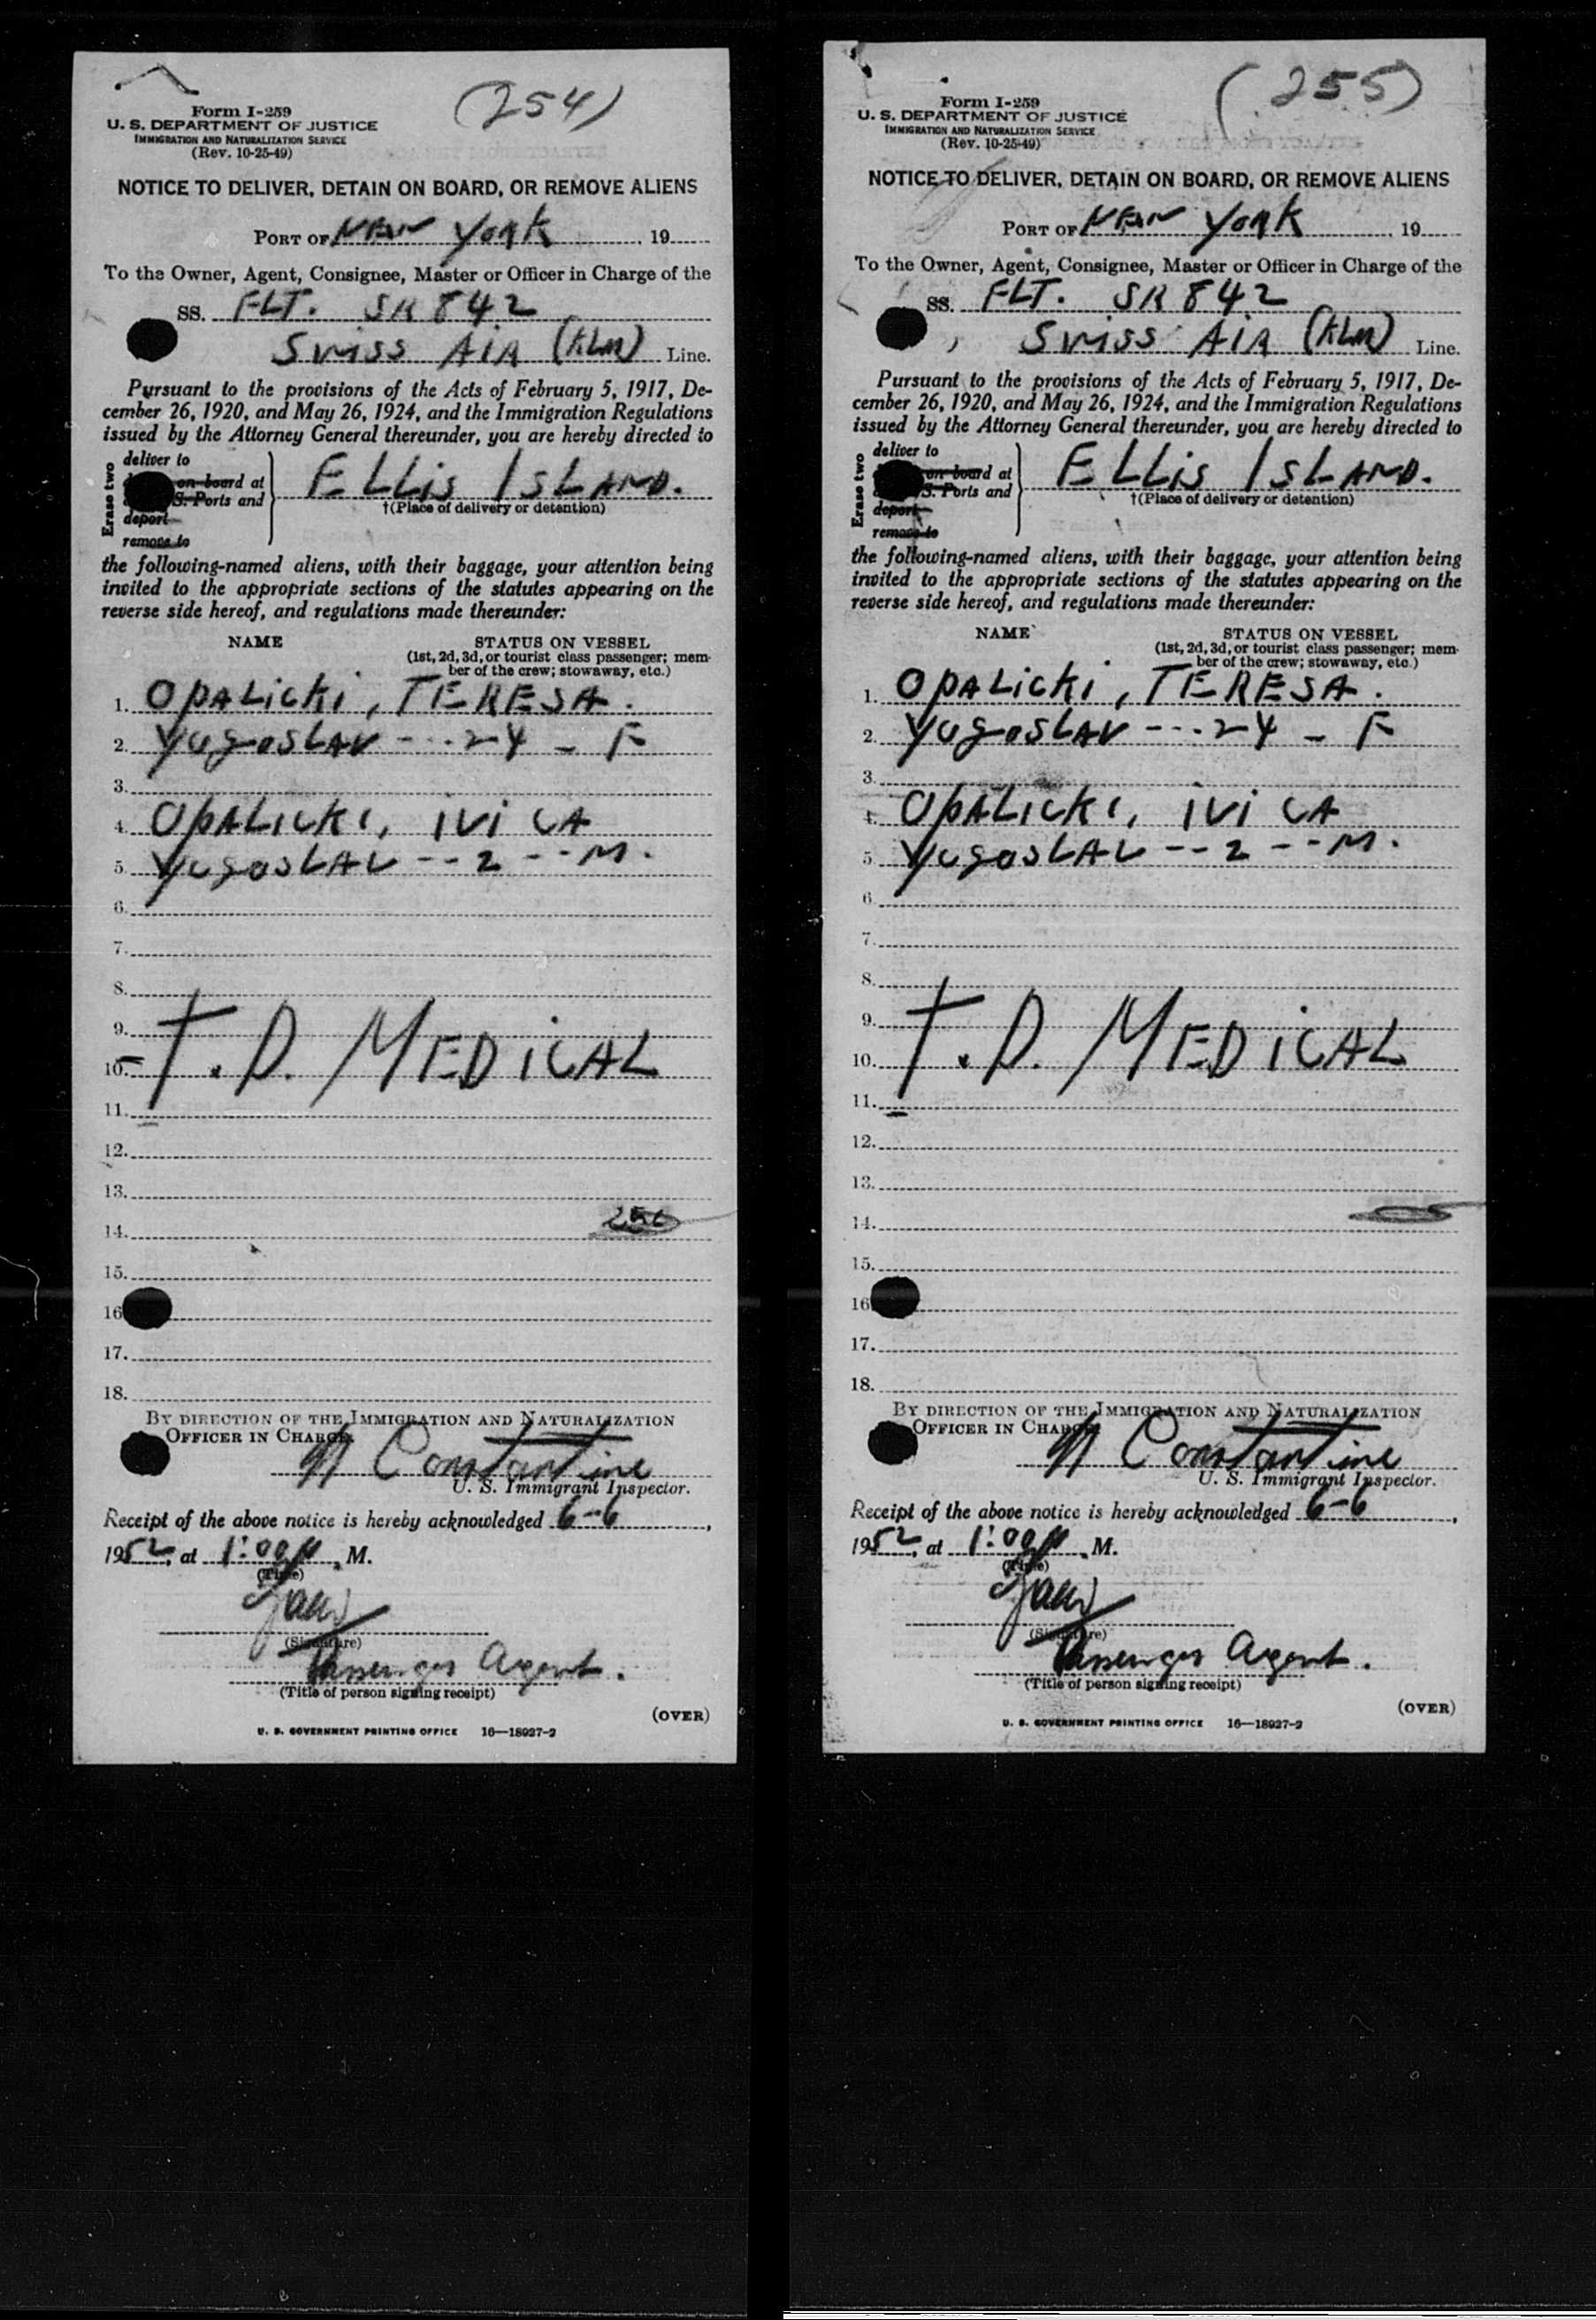 Form I-259
U. S. DEPARTMENT OF JUSTICE
IMMIGRATION AND NATURALIZATION SERVICE
(Rev. 10-25-49)
(254)
NOTICE TO DELIVER, DETAIN ON BOARD, OR REMOVE ALIENS
PORT OF NEW YORK, 19
To the Owner, Agent, Consignee, Master or Officer in Charge of the
SS. FLT. SR 842
SWISS AIR (KLM) Line.
Pursuant to the provisions of the Acts of February 5, 1917, De-
cember 26, 1920, and May 26, 1924, and the Immigration Regulations
issued by the Attorney General thereunder, you are hereby directed to
Erase two
deliver to
on board at
S. Ports and
deport
remove to
ELLIS ISLAND.
†(Place of delivery or detention)
the following-named aliens, with their baggage, your attention being
invited to the appropriate sections of the statutes appearing on the
reverse side hereof, and regulations made thereunder:
NAME
STATUS ON VESSEL
(1st, 2d, 3d, or tourist class passenger; mem-
ber of the crew; stowaway, etc.)
1. OPALICKI, TERESA.
2. YUGOSLAV --- 24 - F
3.
4. OPALICKI, IVICA
5. YUGOSLAV -- 2 -- M.
6.
7.
8.
9.
10. T.D. MEDICAL
11.
12.
13.
14.
15.
16
17.
18.
BY DIRECTION OF THE IMMIGRATION AND NATURALIZATION
OFFICER IN CHARGE
Constantine
U. S. Immigrant Inspector.
Receipt of the above notice is hereby acknowledged 6-6,
1952, at 1:00 P. M.
(Time)
(Signature)
Passenger Agent.
(Title of person signing receipt)
(OVER)
U. S. GOVERNMENT PRINTING OFFICE 16—18927-2
Form I-259
U. S. DEPARTMENT OF JUSTICE
IMMIGRATION AND NATURALIZATION SERVICE
(Rev. 10-25-49)
(255)
NOTICE TO DELIVER, DETAIN ON BOARD, OR REMOVE ALIENS
PORT OF NEW YORK, 19
To the Owner, Agent, Consignee, Master or Officer in Charge of the
SS. FLT. SR 842
SWISS AIR (KLM) Line.
Pursuant to the provisions of the Acts of February 5, 1917, De-
cember 26, 1920, and May 26, 1924, and the Immigration Regulations
issued by the Attorney General thereunder, you are hereby directed to
Erase two
deliver to
on board at
S. Ports and
deport
remove to
ELLIS ISLAND.
†(Place of delivery or detention)
the following-named aliens, with their baggage, your attention being
invited to the appropriate sections of the statutes appearing on the
reverse side hereof, and regulations made thereunder:
NAME
STATUS ON VESSEL
(1st, 2d, 3d, or tourist class passenger; mem-
ber of the crew; stowaway, etc.)
1. OPALICKI, TERESA.
2. YUGOSLAV --- 24 - F
3.
4. OPALICKI, IVICA
5. YUGOSLAV -- 2 -- M.
6.
7.
8.
9.
10. T.D. MEDICAL
11.
12.
13.
14.
15.
16
17.
18.
BY DIRECTION OF THE IMMIGRATION AND NATURALIZATION
OFFICER IN CHARGE
Constantine
U. S. Immigrant Inspector.
Receipt of the above notice is hereby acknowledged 6-6,
1952, at 1:00 P. M.
(Time)
(Signature)
Passenger Agent.
(Title of person signing receipt)
(OVER)
U. S. GOVERNMENT PRINTING OFFICE 16—18927-2